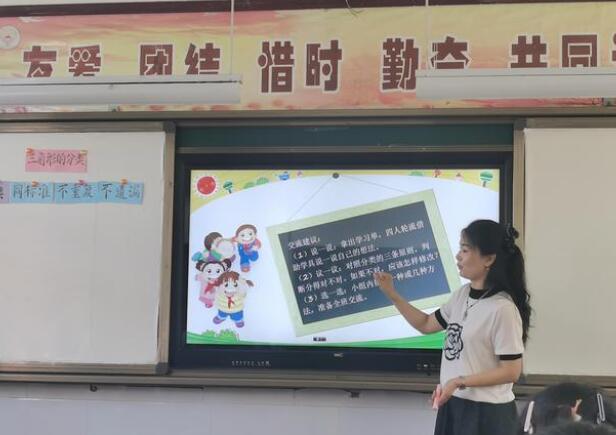 友爱 团结 惜时 勤奋 共同
三角形的分类
同标准 不重复 不遗漏
交流建议：
（1）说一说：拿出学习单，四人轮流借
助学具说一说自己的想法。
（2）议一议：对照分类的三条原则，判
断分得对不对，如果不对，应该怎样修改？
（3）选一选：小组内
一种或几种方
法，准备全班交流。